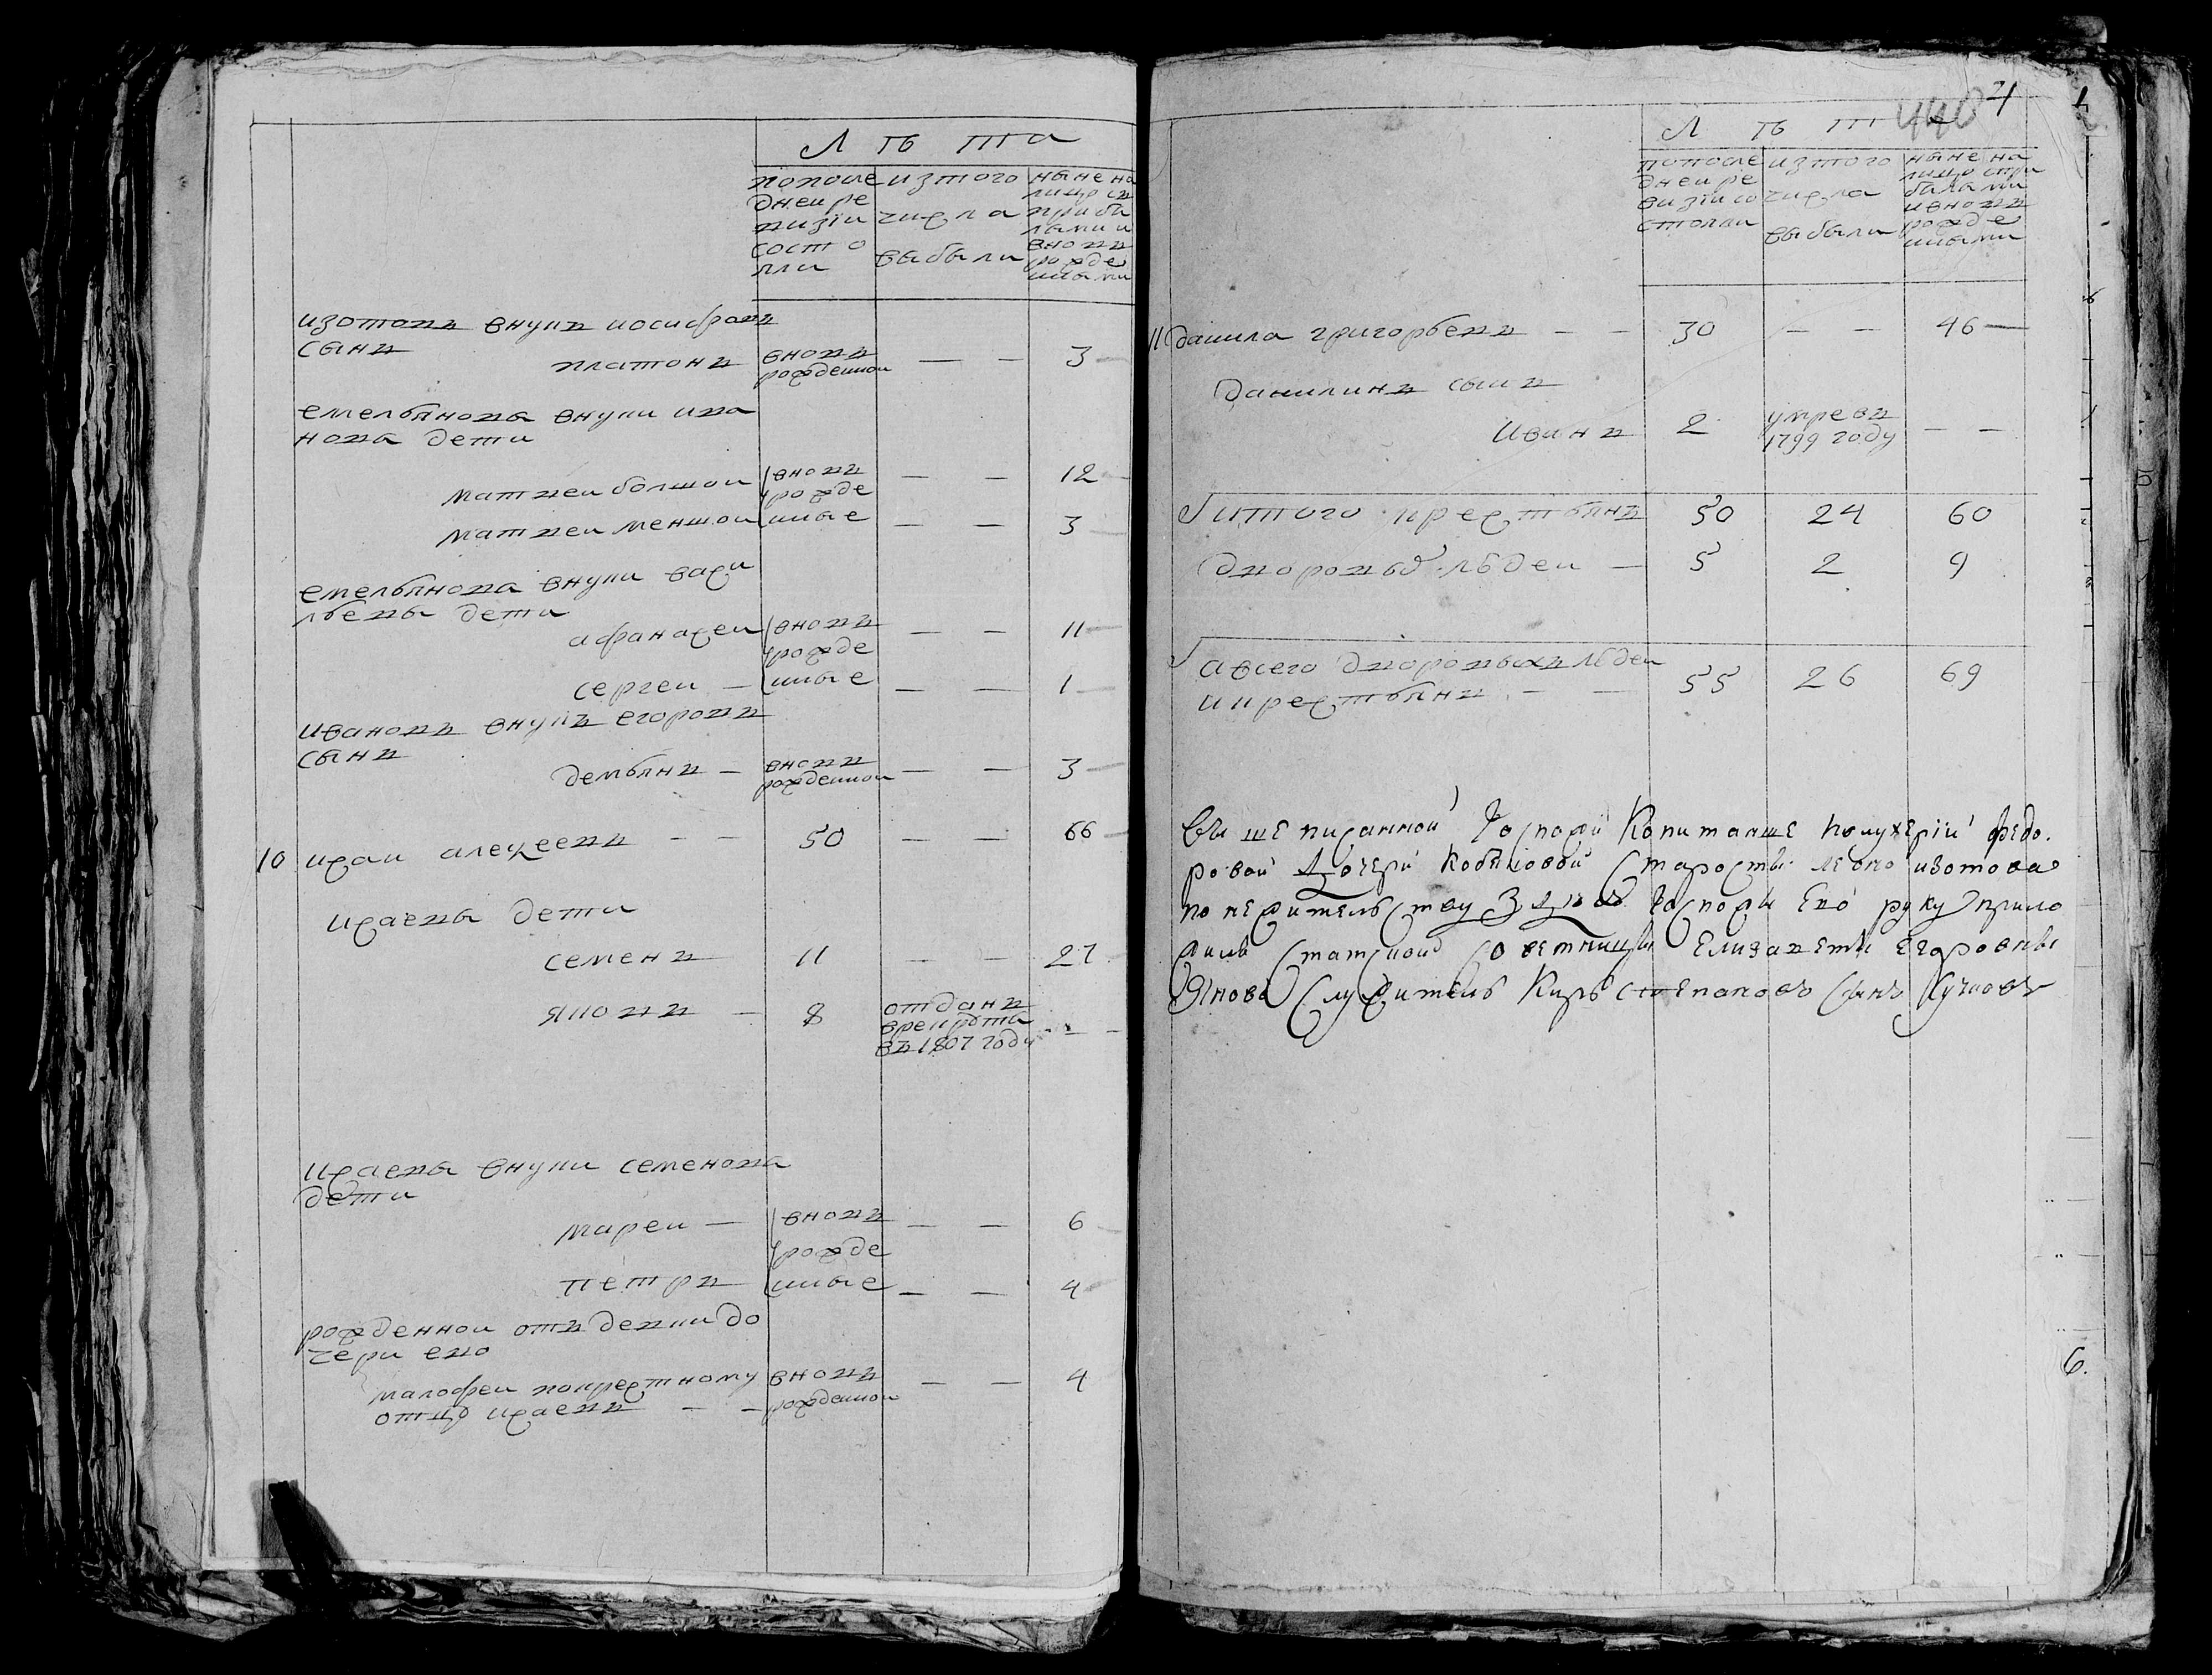 Л ѣ та
попосле
дней ре
визіи
состо
яли
изтого
числа
выбыли
ныне на
лицо съ
прибы
лыми и
вновь
рожде
нными
изотовъ внукъ иосифовъ
сынъ
платонъ вновь рожденной — — 3
емельянова внуки ива
нова дети
матвеи болшои вновь — — 12
рожде
матвеи меншои нные — — 3
емельянова внуки васи
льевы дети
афанасеи вновь — — 11
рожде
сергеи — нные — — 1
ивановъ внукъ егоровъ
сынъ
демьянъ — вновь рожденной — — 3
10 исаи алексеевъ — — 50 — — 66
исаевы дети
семенъ 11 — — 27
яковъ — 8 отданъ
врекруты
въ 1807 году — —
исаевы внуки семенова
дети
мареи — вновь — — 6
рожде
петръ нные — — 4
рожденнои отъ девки до
чери ево
малофеи покрестному вновь — — 4
отцу исаевъ — — рожденной
440 4
Л ѣ та
попосле
дней ре
визіи со
стояли
изтого
числа
выбыли
ныне на
лицо спри
былыми
ивновь
рожде
нными
11 данила григорьевъ — — 30 — — 46 —
данилинъ сынъ
Иванъ 2 умре въ
1799 году — —
итого крестьянъ 50 24 60
дворовыхъ людеи — 5 2 9
авсего дворовыхъ людеи
икрестьянъ — — 55 26 69
Вышеписанной Госпожи Капитанше Федо
ровой дочери Кобыловой Старосты изотова
Госпожи Ево руку прило
жилъ Статской советницы Елизаветы Егоровны
Яновы Служитель Степановъ сынъ
6.